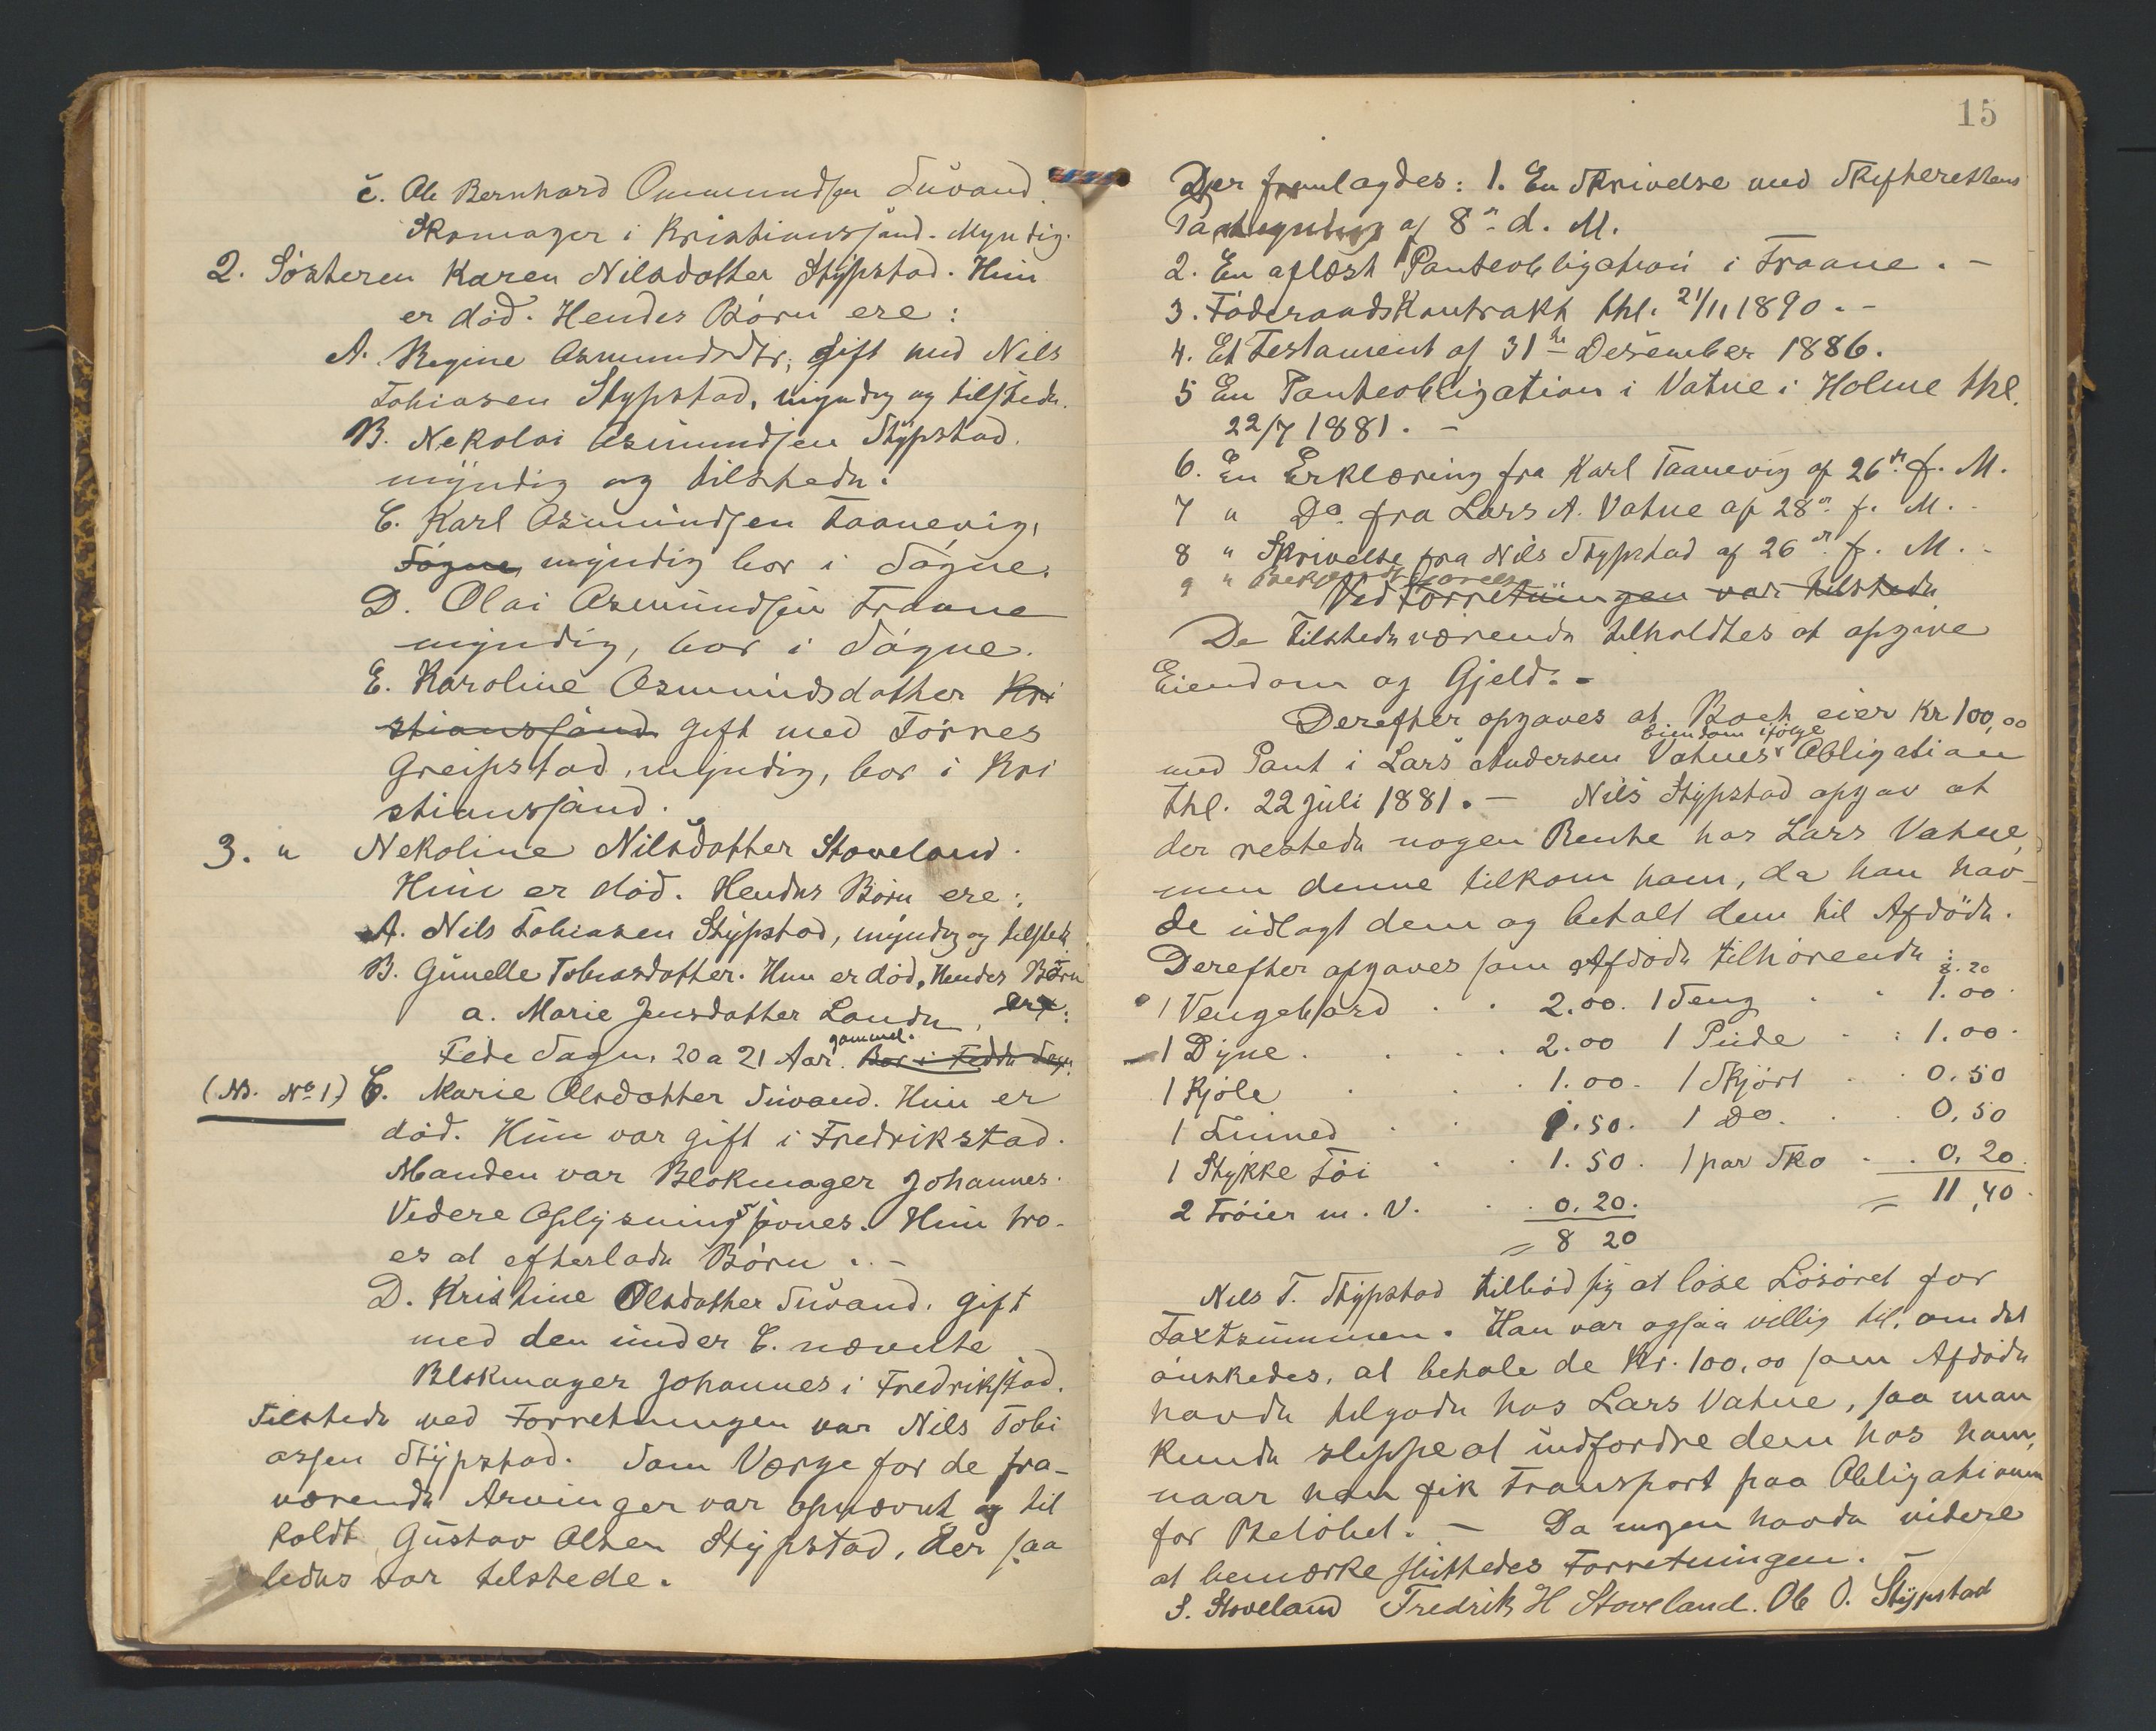 c. Ole Bernhard Ommundsen Suvand.
Skomager i Kristianssand. Myndig.
2. Søsteren Karen Nilsdatter Stypstad. Hun
er død. Hendes Børn ere:
A. Regine Asmundsdtr, gift med Nils
Tobiasen Stypstad, myndig og tilstede.
B. Nekolai Asmundsen Stypstad.
myndig og tilstede.
C. Karl Asmundsen Taanevig,
Søgne, myndig bor i Søgne.
D. Olai Asmundsen Traane
myndig, bor i Søgne.
E. Karoline Asmundsdatter Kri
stianssand gift med Tørres
Greipstad, myndig, bor i Kri
stianssand.
3. " Nekoline Nilsdatter Stoveland.
Hun er død. Hendes Børn ere:
A. Nils Tobiasen Stypstad, myndig og tilstede
B. Gunelle Tobiasdatter. Hun er død. Hendes Børn
ere:
a. Marie Jensdatter Lande,
Fede Sogn, 20 a 21 Aar gammel. Bor i Fedde Sogn.
(NB. No 1) C. Marie Olsdatter Suvand. Hun er
død. Hun var gift i Fredrikstad.
Manden var Blokmager Johannes.
Videre Oplysning savnes. Hun tro-
es at efterlade Børn. -
D. Kristine Olsdatter Suvand, gift
med den under C. nævnte
Blokmager Johannes i Fredrikstad.
Tilstede ved Forretningen var Nils Tobi
assen Stypstad. Som Værge for de fra-
værende Arvinger var opnævnt og til
kaldt Gustav Olsen Stypstad, der saa
ledes var tilstede.
15
Der fremlagdes: 1. En Skrivelse med Skifterettens
Paategning af 8de d. M.
2. En aflæst Panteobligation i Traane. -
3. Føderaadskontrakt thl. 21/11 1890. -
4. Et Testament af 31te Desember 1886.
5 En Panteobligation i Vatne i Holme thl.
22/7 1881. -
6. En Erklæring fra Karl Taanevig af 26de f. M.
7 " Do fra Lars A. Vatne af 28de f. M. -
8 " Skrivelse fra Nils Stypstad af 26de f. M. -
9 "
Ved Forretningen var tilstede
De tilstedeværende tilholdtes at opgive
Eiendom og Gjeld. -
Derefter opgaves at Boet eier Kr 100,00
med Pant i Lars Andersen Vatnes Eiendom ifølge Obligation
thl. 22 juli 1881. - Nils Stypstad opgav at
der restede nogen Rente hos Lars Vatne,
men denne tilkom ham, da han hav-
de udlagt dem og betalt dem til Afdøde.
Derefter opgaves som Afdøde tilhørende:
8.20
1 Vengebord . . 2.00. 1 Seng . . 1.00.
1 Dyne . . . 2.00 1 Pude . . 1.00.
1 Kjole . . . 1.00. 1 Skjørt . . 0,50
1 Linned . . 1.50. 1 Do. . . 0,50
1 Stykke Tøi . . 1.50. 1 par Sko . . 0,20.
2 Trøier m. V. . . 0.20. = 11,40.
= 8 20
Nils T. Stypstad tilbød sig at løse Løsøret for
Taxtsummen. Han var ogsaa villig til, om det
ønskedes, at betale de Kr. 100,00 som Afdøde
havde tilgode hos Lars Vatne, saa man
kunde slippe at indfordre dem hos ham,
naar han fik Transport paa Obligationen
for Beløbet. - Da ingen havde videre
at bemærke sluttedes Forretningen. -
S. Stoveland Fredrik H Stoveland. Ole O. Stypstad